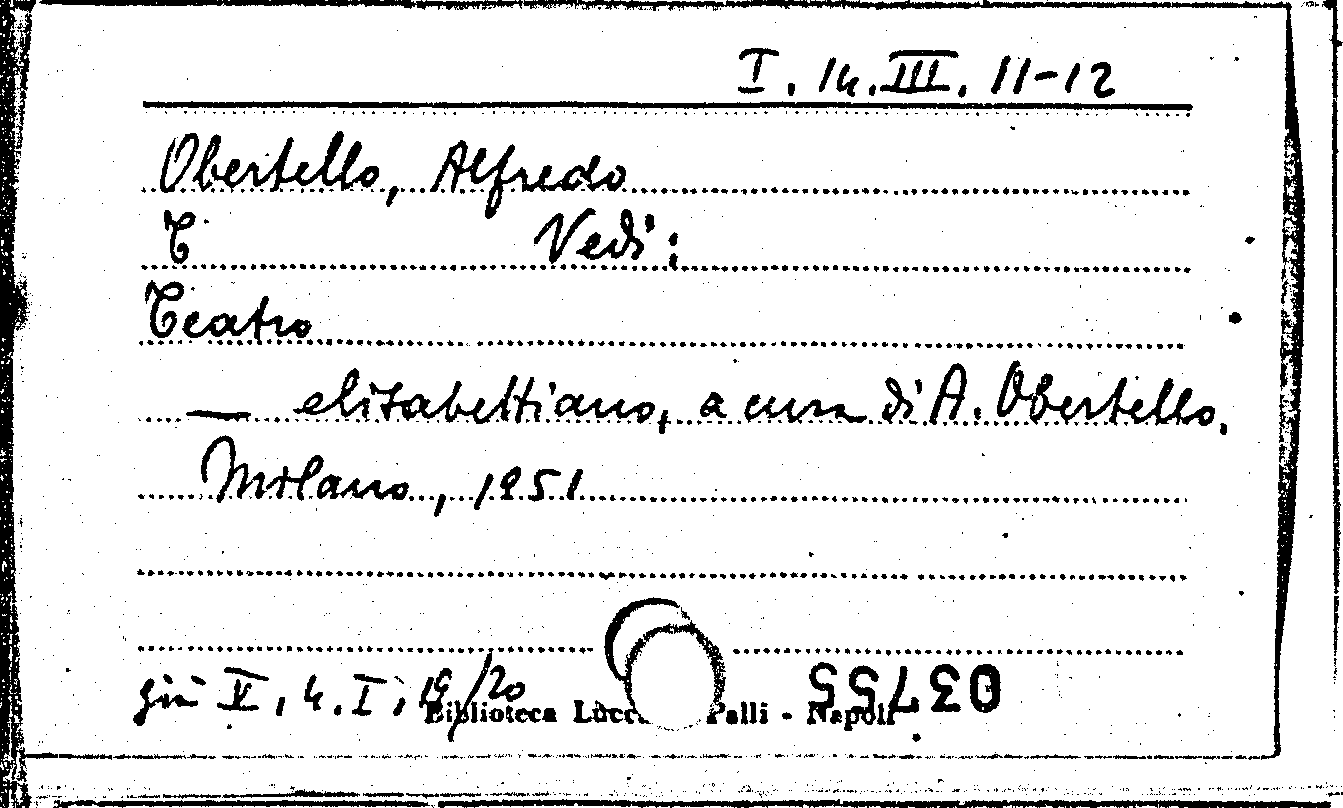 I. 14. III. 11-12
Obertello, Alfredo
T Vedi:
Teatro
— elisabettiano, a cura di A. Obertello.
Milano, 1951
già V, 4. I, 19/20
Biblioteca Palli - Napoli